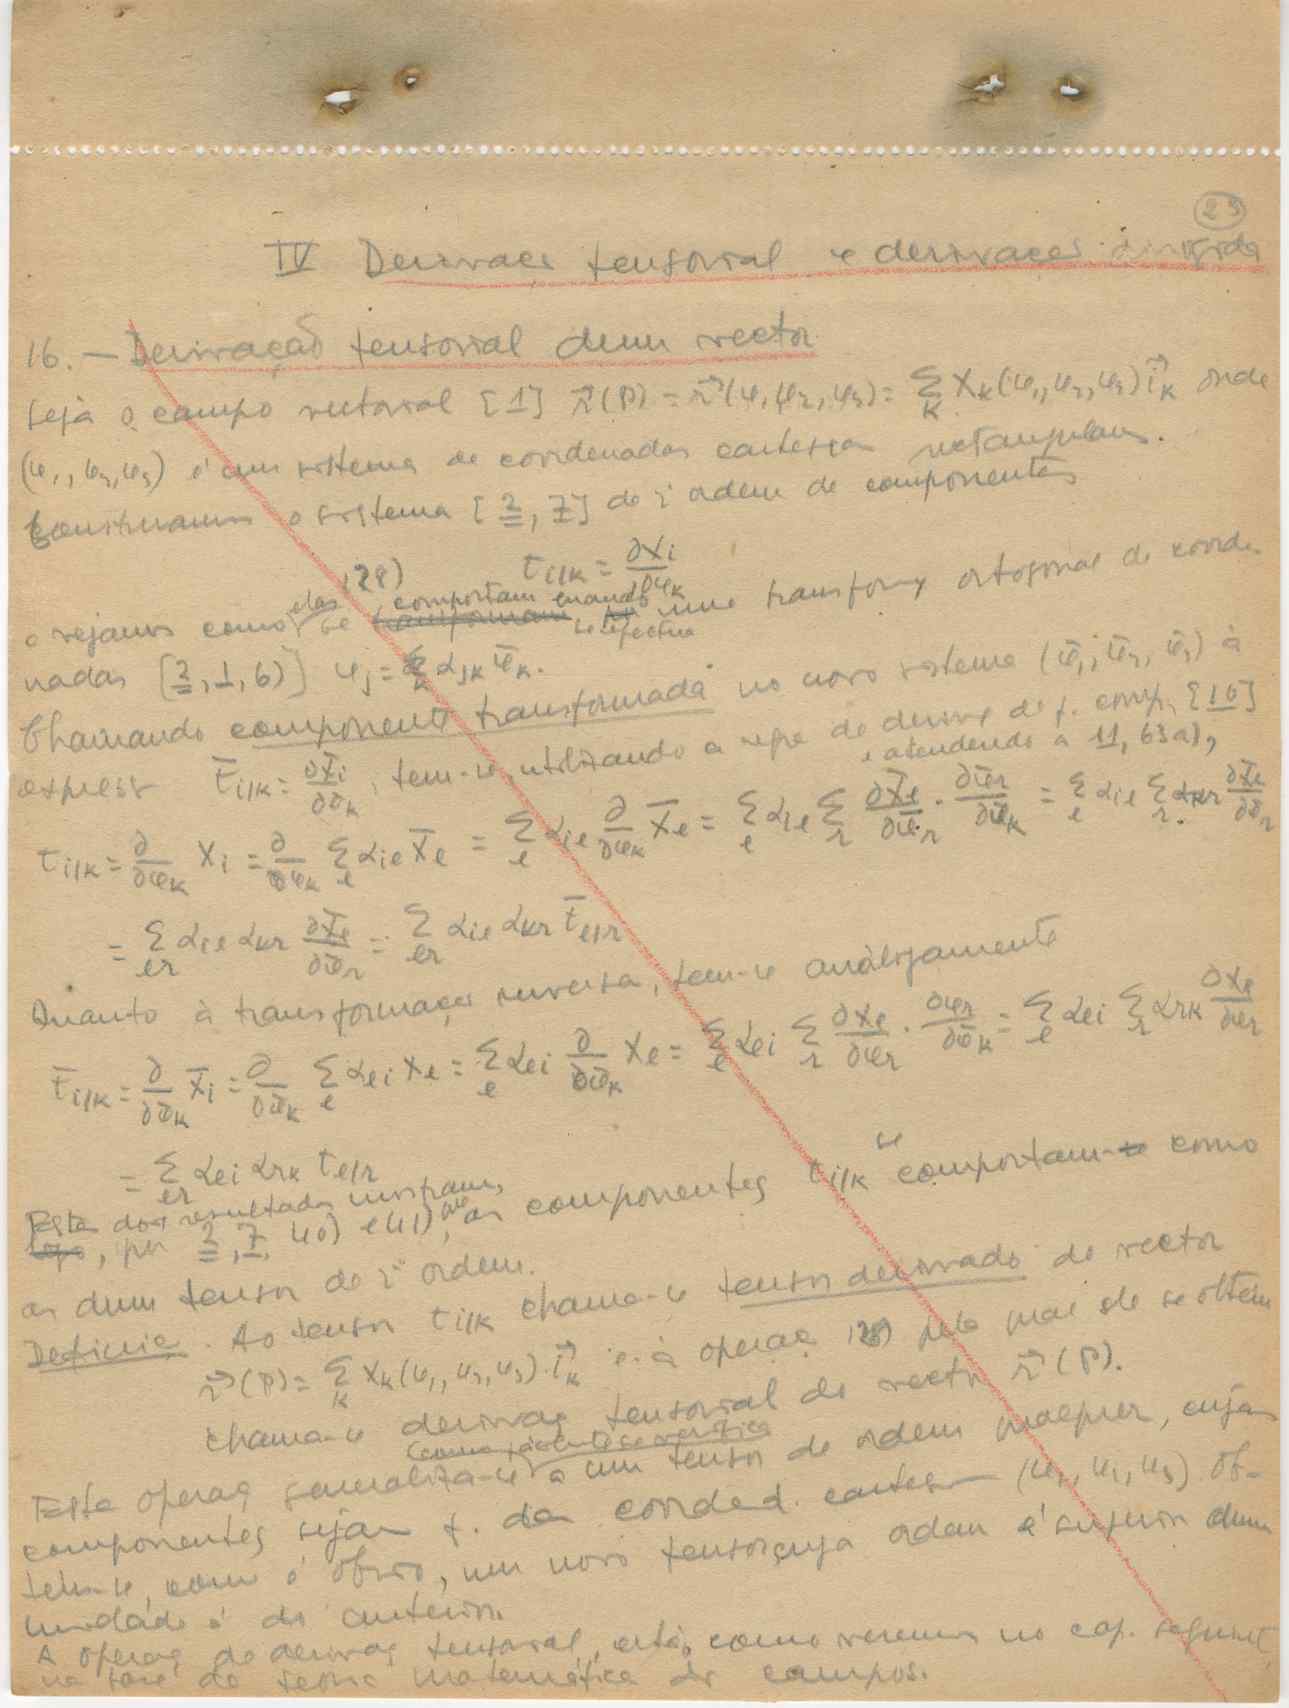 23
IV Derivação tensorial e derivações dirigida
16. — Derivação tensorial dum vector
Seja o campo vectorial [1] r⃗(P) = r⃗(φ₁,φ₂,φ₃) = Σ_k X_k(φ₁,φ₂,φ₃) i⃗_k onde
(φ₁,φ₂,φ₃) é um sistema de coordenadas cartesianas rectangulares.
Construamos o sistema [2, 7] de 2ª ordem de componentes
28) t_{i/k} = ∂X_i/∂φ_k
e vejamos como elas se comportam quando se efectua uma transformç ortogonal de coorde-
nadas [2, 1, 6)] φ_j = Σ_k α_jk φ̄_k.
Chamando componente transformada no novo sistema (φ̄₁, φ̄₂, φ̄₃) à
express t̄_{i/k} = ∂X̄_i/∂φ̄_k, tem-se, utilizando a regra de derivç de f. comp. [10]
e atendendo a 11, 63a),
t_{i/k} = ∂/∂φ_k X_i = ∂/∂φ_k Σ_l α_il X̄_l = Σ_l α_il ∂/∂φ_k X̄_l = Σ_l α_il Σ_r ∂X̄_l/∂φ̄_r · ∂φ̄_r/∂φ_k = Σ_l α_il Σ_r α_kr ∂X̄_l/∂φ̄_r
= Σ_lr α_il α_kr ∂X̄_l/∂φ̄_r = Σ_lr α_il α_kr t̄_{l/r}
Quanto à transformação inversa, tem-se anàlogamente
t̄_{i/k} = ∂/∂φ̄_k X̄_i = ∂/∂φ̄_k Σ_l α_li X_l = Σ_l α_li ∂/∂φ̄_k X_l = Σ_l α_li Σ_r ∂X_l/∂φ_r · ∂φ_r/∂φ̄_k = Σ_l α_li Σ_r α_rk ∂X_l/∂φ_r
= Σ_lr α_li α_rk t_{l/r}
Estes dois resultados mostram,
por 2, 7, 40) e 41) que as componentes t_{i/k} se comportam como
as dum tensor de 2ª ordem.
Definiç. Ao tensor t_{i/k} chama-se tensor derivado do vector
r⃗(P) = Σ_k X_k(φ₁,φ₂,φ₃)·i⃗_k e à operaç 28) pela qual ele se obtem
chama-se derivaç tensorial do vector r⃗(P).
Esta operaç generaliza-se a um tensor de ordem qualquer, cujas
componentes sejam f. das coorded. cartes (φ₁,φ₂,φ₃). Ob-
tem-se, como é óbvio, um novo tensor cuja ordem é superior duma
unidade à do anterior.
A operaç de derivaç tensorial está, como veremos no cap. seguint,
na base da teoria matemática dos campos.